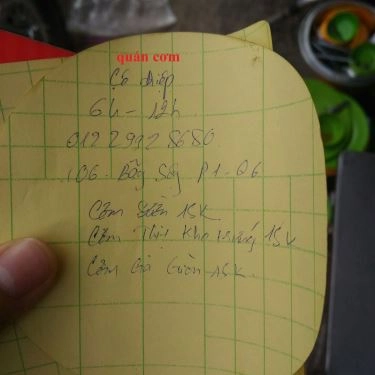 quán cơm
Cô Điệp
6h - 12h
01229928680
106. Bãi Sậy P1-Q6
Cơm sườn 15K
Cơm thịt kho trứng 15K
Cơm Gà Giòn 15K.